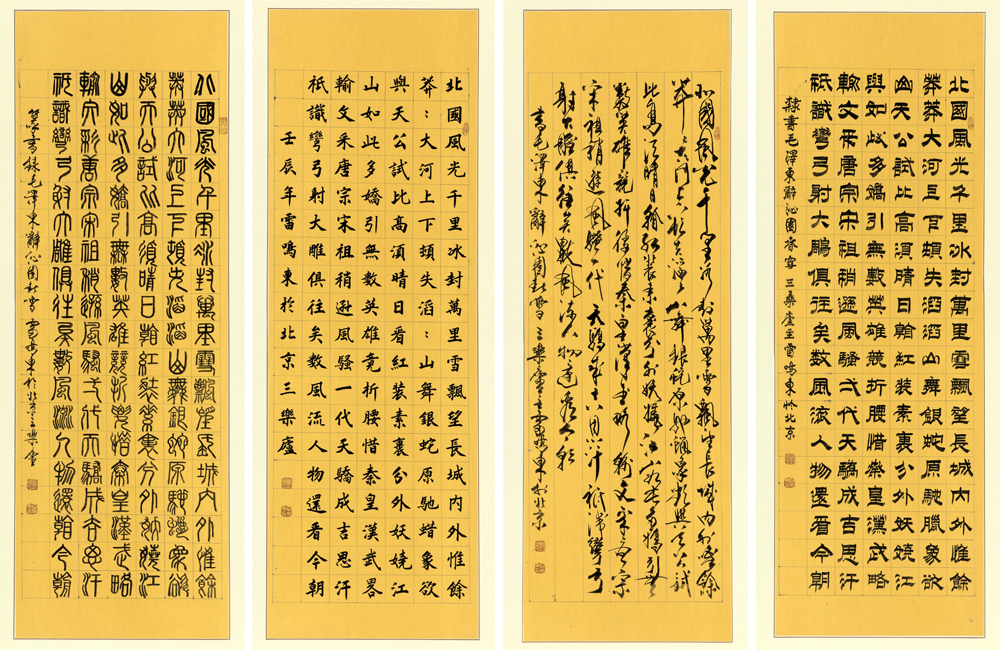 北國風光千里冰封萬里雪飄望長城內外惟餘
莽莽大河上下頓失滔滔山舞銀蛇原馳蠟象欲
與天公試比高須晴日看紅裝素裹分外妖嬈江
山如此多嬌引無數英雄競折腰惜秦皇漢武略
輸文采唐宗宋祖稍遜風騷一代天驕成吉思汗
祇識彎弓射大雕俱往矣數風流人物還看今朝
篆書錄毛澤東辭沁園春雪 雷鳴東於北京三樂廬
北國風光千里冰封萬里雪飄望長城內外惟餘
莽：大河上下頓失滔：山舞銀蛇原馳蜡象欲
與天公試比高須晴日看紅裝素裹分外妖嬈江
山如此多嬌引無数英雄竞折腰惜秦皇漢武畧
輸文采唐宗宋祖稍遜風騷一代天驕成吉思汗
祇識彎弓射大雕俱往矣数風流人物還看今朝
壬辰年雷鳴東於北京三樂廬
北國風光千里冰封萬里雪飄望長城內外惟餘
莽：大河上下頓失滔：山舞銀蛇原馳蠟象欲與天公試
比高須晴日看紅裝素裹分外妖嬈江山如此多嬌引無
數英雄競折腰惜秦皇漢武略輸文采唐宗
宋祖稍遜風騷一代天驕成吉思汗祇識彎弓
射大雕俱往矣數風流人物還看今朝
書毛澤東辭沁園春雪 三樂廬主雷鳴東於北京
北國風光千里冰封萬里雪飄望長城內外惟餘
莽莽大河上下頓失滔滔山舞銀蛇原馳臘象欲
與天公試比高須晴日看紅裝素裹分外妖嬈江
山如此多嬌引無數英雄競折腰惜秦皇漢武略
輸文采唐宗宋祖稍遜風騷一代天驕成吉思汗
祇識彎弓射大鵰俱往矣数風流人物還看今朝
隸書毛澤東辭沁園春雪 三樂廬主雷鳴東於北京